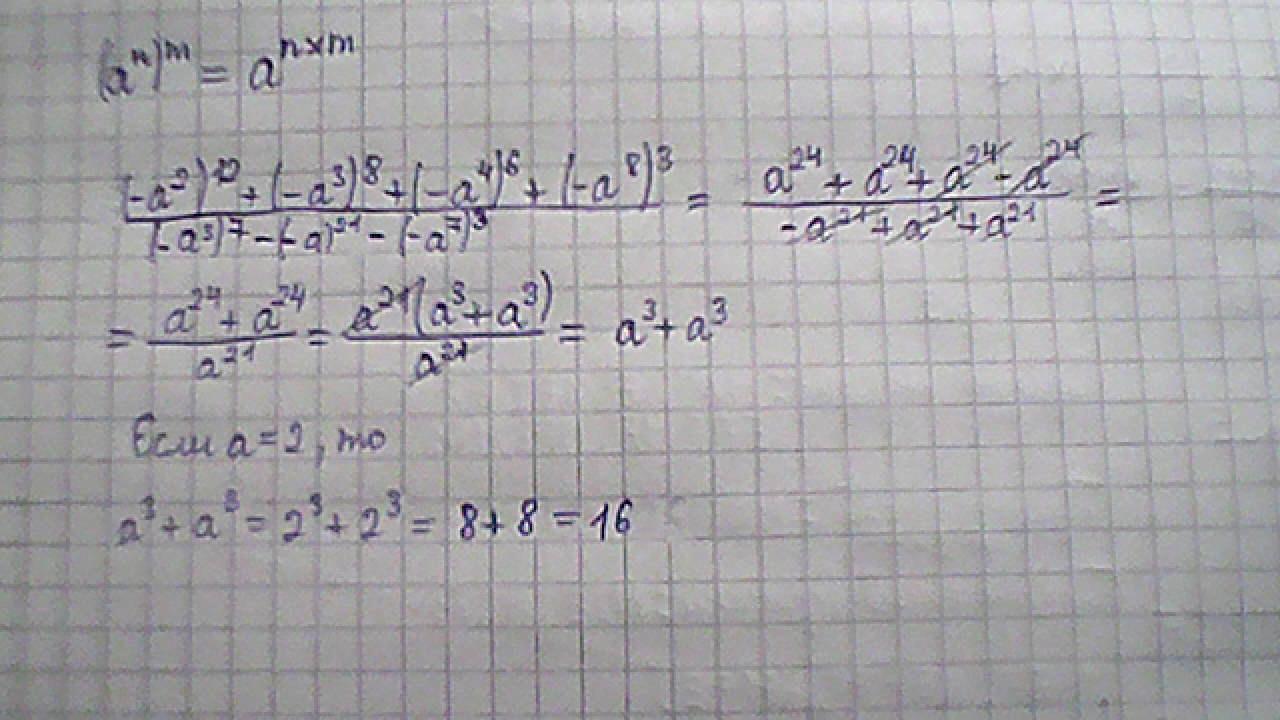 (aⁿ)ᵐ = aⁿˣᵐ
((-a²)¹² + (-a³)⁸ + (-a⁴)⁶ + (-a⁸)³) / ((-a³)⁷ - (-a)²¹ - (-a⁷)³) = (a²⁴ + a²⁴ + a²⁴ - a²⁴) / (-a²¹ + a²¹ + a²¹) =
= (a²⁴ + a²⁴) / a²¹ = a²¹(a³ + a³) / a²¹ = a³ + a³
Если a = 2, то
a³ + a³ = 2³ + 2³ = 8 + 8 = 16